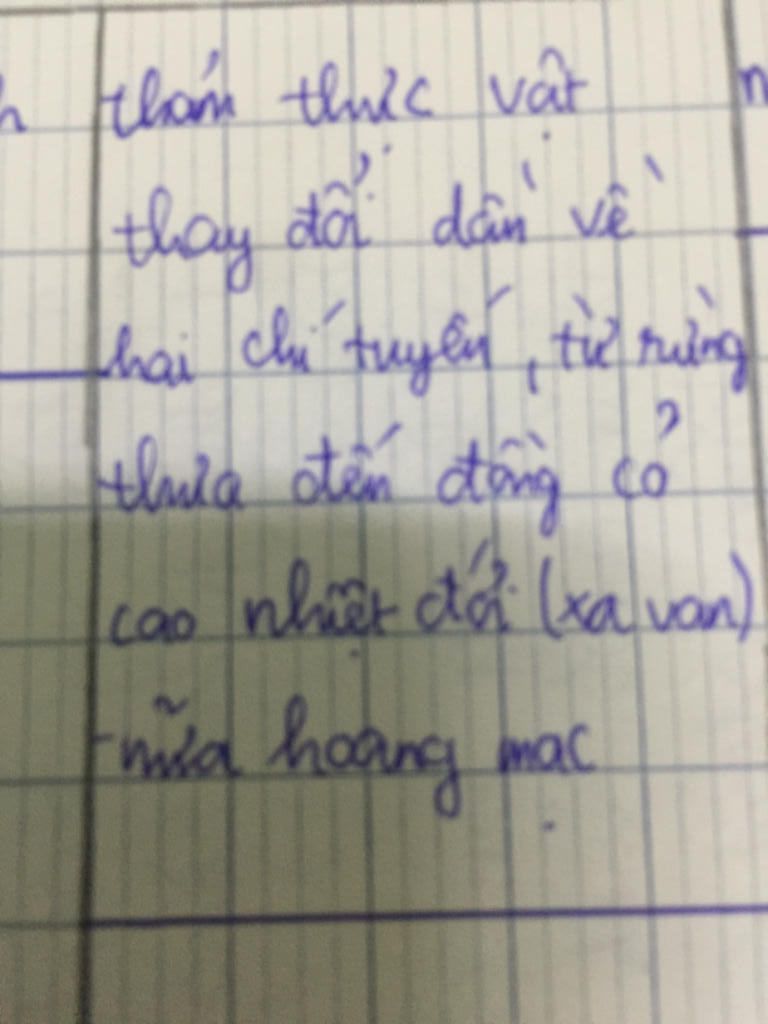 thảm thực vật
thay đổi dần về
hai chí tuyến, từ rừng
thưa đến đồng cỏ
cao nhiệt đới (xa van)
nữa hoang mạc